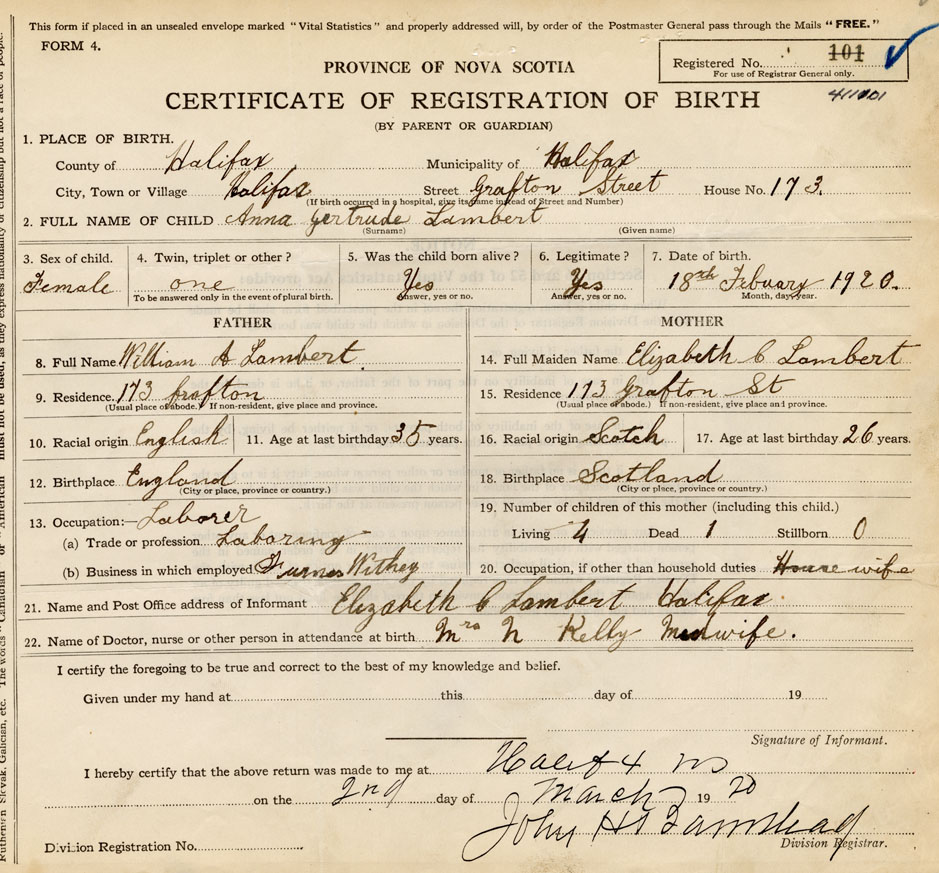 This form if placed in an unsealed envelope marked "Vital Statistics" and properly addressed will, by order of the Postmaster General pass through the Mails "FREE."
FORM 4.
Registered No. 101
For use of Registrar General only.
PROVINCE OF NOVA SCOTIA
CERTIFICATE OF REGISTRATION OF BIRTH
(BY PARENT OR GUARDIAN)
1. PLACE OF BIRTH.
County of Halifax Municipality of Halifax
City, Town or Village Halifax Street Grafton Street House No. 173.
(If birth occurred in a hospital, give its name instead of Street and Number)
2. FULL NAME OF CHILD Anna Gertrude Lambert
(Surname) (Given name)
3. Sex of child. 4. Twin, triplet or other? 5. Was the child born alive? 6. Legitimate? 7. Date of birth.
Female one Yes Yes 18 Febuary 1920.
To be answered only in the event of plural birth. Answer, yes or no. Answer, yes or no. Month, day, year.
FATHER MOTHER
8. Full Name William A Lambert 14. Full Maiden Name Elizabeth C Lambert
9. Residence. 173 Grafton 15. Residence 173 Grafton St
(Usual place of abode.) If non-resident, give place and province. (Usual place of abode.) If non-resident, give place and province.
10. Racial origin English 11. Age at last birthday 35 years. 16. Racial origin Scotch 17. Age at last birthday 26 years.
12. Birthplace England 18. Birthplace Scotland
(City or place, province or country.) (City or place, province or country.)
13. Occupation:— Laborer 19. Number of children of this mother (including this child.)
(a) Trade or profession. Laboring Living 4 Dead 1 Stillborn 0
(b) Business in which employed Furnes Withey 20. Occupation, if other than household duties House wife
21. Name and Post Office address of Informant Elizabeth C Lambert Halifax.
22. Name of Doctor, nurse or other person in attendance at birth. Mrs N Kelly Midwife.
I certify the foregoing to be true and correct to the best of my knowledge and belief.
Given under my hand at this day of 19
Signature of Informant.
I hereby certify that the above return was made to me at Halifx NS
on the 2nd day of March 19 20
John H
Division Registration No. Division Registrar.